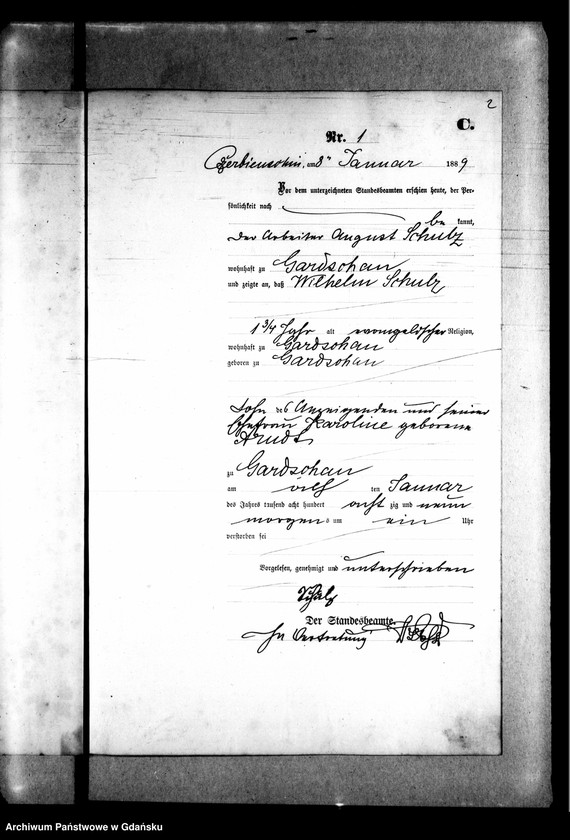 2
C.
Nr. 1
Czerbienschin, am 8ten Januar 1889
Vor dem unterzeichneten Standesbeamten erschien heute, der Per-
sönlichkeit nach
be kannt,
der Arbeiter August Schulz
wohnhaft zu Gardschau
und zeigte an, daß Wilhelm Schulz,
1 3/4 Jahr alt evangelischer Religion,
wohnhaft zu Gardschau
geboren zu Gardschau
Sohn des Anzeigenden und seiner
Ehefrau Karoline geborene
Arndt
zu Gardschau
am ten Januar
des Jahres tausend acht hundert acht zig und neun
morgens um ein Uhr
verstorben sei
Vorgelesen, genehmigt und unterschrieben
Schulz
Der Standesbeamte.
In Vertretung
Archiwum Państwowe w Gdańsku